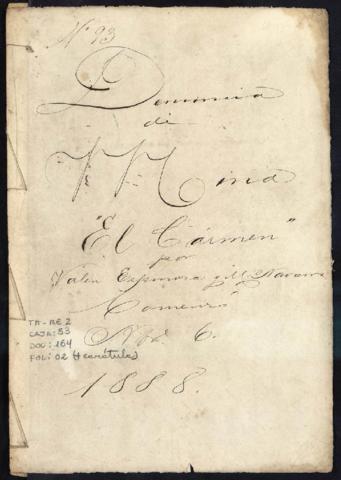 Nº 93
Denuncia
de
Mina
"El Cármen"
por
Valen Espinosa y M. Navarro
Comenzó
Nov. 6.
1888.
TM-AE 2
CAJA: 53
DOC: 164
FOL: 02 (+ carátula)